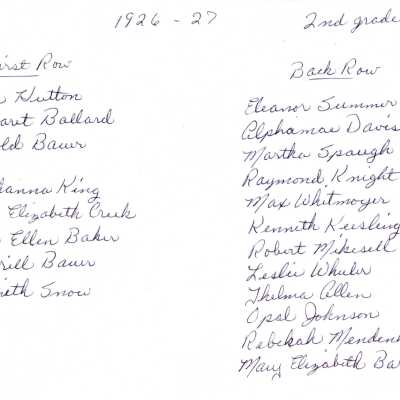 1926 - 27
2nd grade
First Row
Hutton
aret Ballard
ld Bauer
anna King
Elizabeth Creek
Ellen Baker
rill Bauer
ith Snow
Back Row
Eleanor Summer
Alphamae Davis
Martha Spaugh
Raymond Knight
Max Whitmoyer
Kenneth Keisling
Robert Mikesell
Leslie Wheeler
Thelma Allen
Opal Johnson
Rebekah Menden
Mary Elizabeth Ba